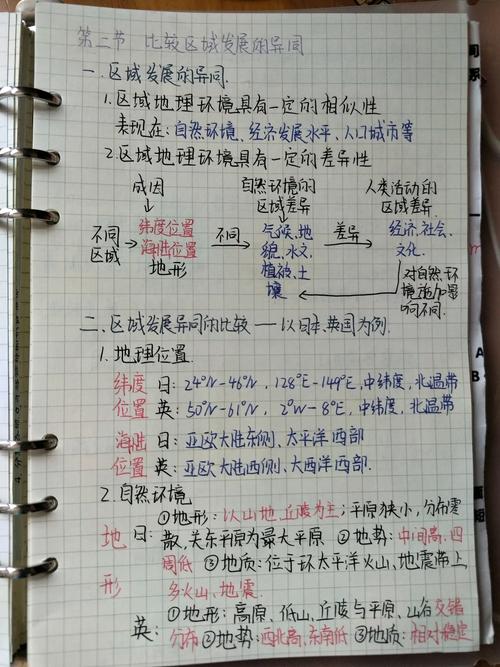 第二节 比较区域发展的异同
一.区域发展的异同.
1.区域地理环境具有一定的相似性
表现在:自然环境、经济发展水平、人口城市等
2.区域地理环境具有一定的差异性
成因 自然环境的区域差异 人类活动的区域差异.
不同区域 → 纬度位置 海陆位置 地形 不同 → 气候、地貌、水文、植被、土壤 差异 → 经济、社会、文化.
对自然环境施加影响不同.
二.区域发展异同的比较 — 以日本、英国为例.
1.地理位置
纬度位置 日:24°N-46°N, 128°E-149°E,中纬度,北温带
英:50°N-61°N, 2°W-8°E,中纬度,北温带
海陆位置 日:亚欧大陆东侧、太平洋西部
英:亚欧大陆西侧、大西洋西部.
2.自然环境
地形 日:①地形:以山地、丘陵为主;平原狭小,分布零
散,关东平原为最大平原 ②地势:中间高,四
周低 ③地质:位于环太平洋火山、地震带上,
多火山、地震.
英:①地形:高原、低山、丘陵与平原、山谷交错
分布 ②地势:西北高,东南低 ③地质:相对稳定